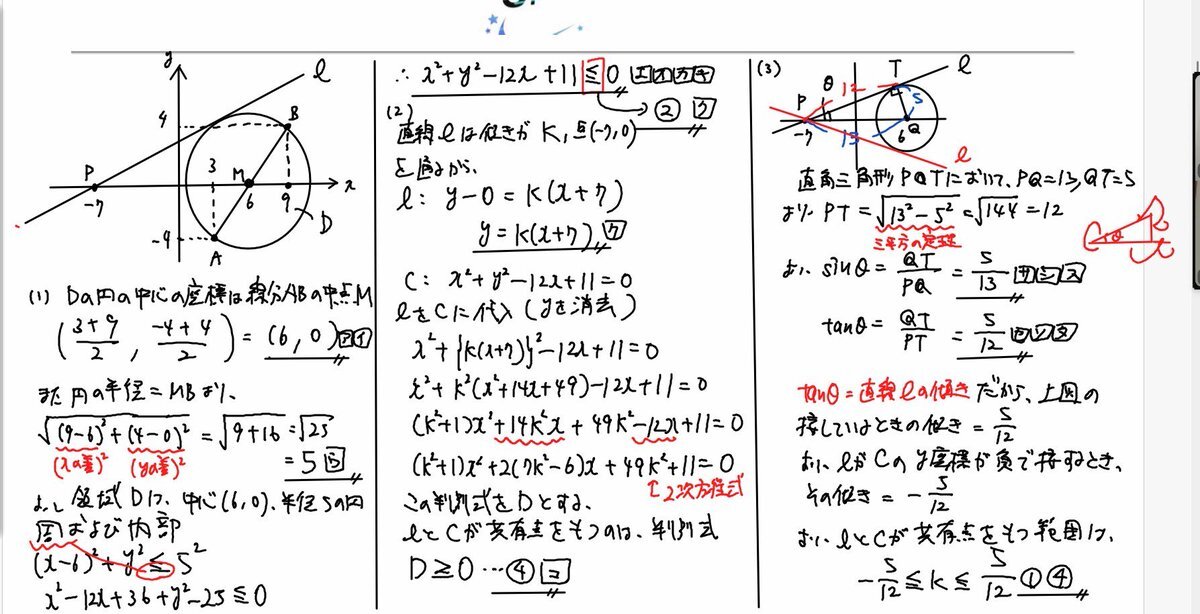 y
l
4
B
3
M
P
x
-7
6
9
D
-4
A
(1) Dの円の中心の座標は線分ABの中点M
(3+9/2, -4+4/2) = (6, 0) アイ
また円の半径=MBより、
√(9-6)²+(4-0)² = √9+16 = √25
(xの差)² (yの差)²
= 5 ウ
よって領域Dは、中心(6,0)、半径5の円
周および内部
(x-6)²+y² ≦ 5²
x²-12x+36+y²-25 ≦ 0
∴ x²+y²-12x+11 ≦ 0 エオカキ
→ ② ク
(2)
直線lは傾きがK, 点(-7,0)
を通るから、
l: y-0 = k(x+7)
y = k(x+7) ケ
C: x²+y²-12x+11=0
lをCに代入(yを消去)
x²+{k(x+7)}²-12x+11=0
x²+k²(x²+14x+49)-12x+11=0
(k²+1)x²+14k²x+49k²-12x+11=0
(k²+1)x²+2(7k²-6)x+49k²+11=0
↑2次方程式
この判別式をDとする。
lとCが共有点をもつのは、判別式
D≧0 … ④ コ
(3)
T
l
θ
12
5
P
-7
13
6
Q
l
直角三角形PQTにおいて、PQ=13, QT=5
より PT = √13²-5² = √144 = 12
三平方の定理
θ
よって sinθ = QT/PQ = 5/13 サシス
tanθ = QT/PT = 5/12
tanθ=直線lの傾きだから、上図の
接しているときの傾き = 5/12
よって lがCのy座標が負で接するとき、
その傾き = -5/12
よって lとCが共有点をもつ範囲は、
-5/12 ≦ k ≦ 5/12 ① ④